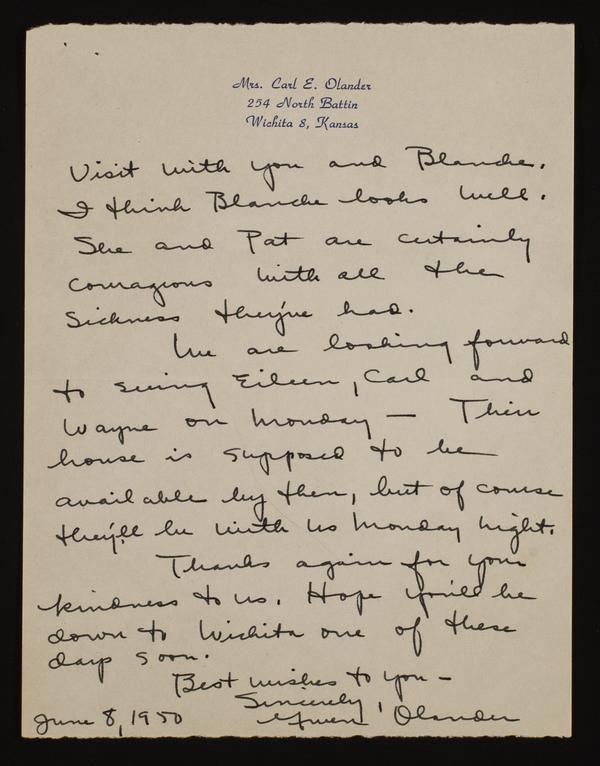 Mrs. Carl E. Olander
254 North Battin
Wichita 8, Kansas
Visit with you and Blanche.
I think Blanche looks well.
She and Pat are certainly
couragious with all the
sickness they've had.
We are looking forward
to seeing Eileen, Carl and
Wayne on Monday — Their
house is supposed to be
available by then, but of course
they'll be with us Monday night.
Thanks again for your
kindness to us. Hope you'll be
down to Wichita one of these
days soon.
Best wishes to you —
Sincerely,
Gwen Olander
June 8, 1950